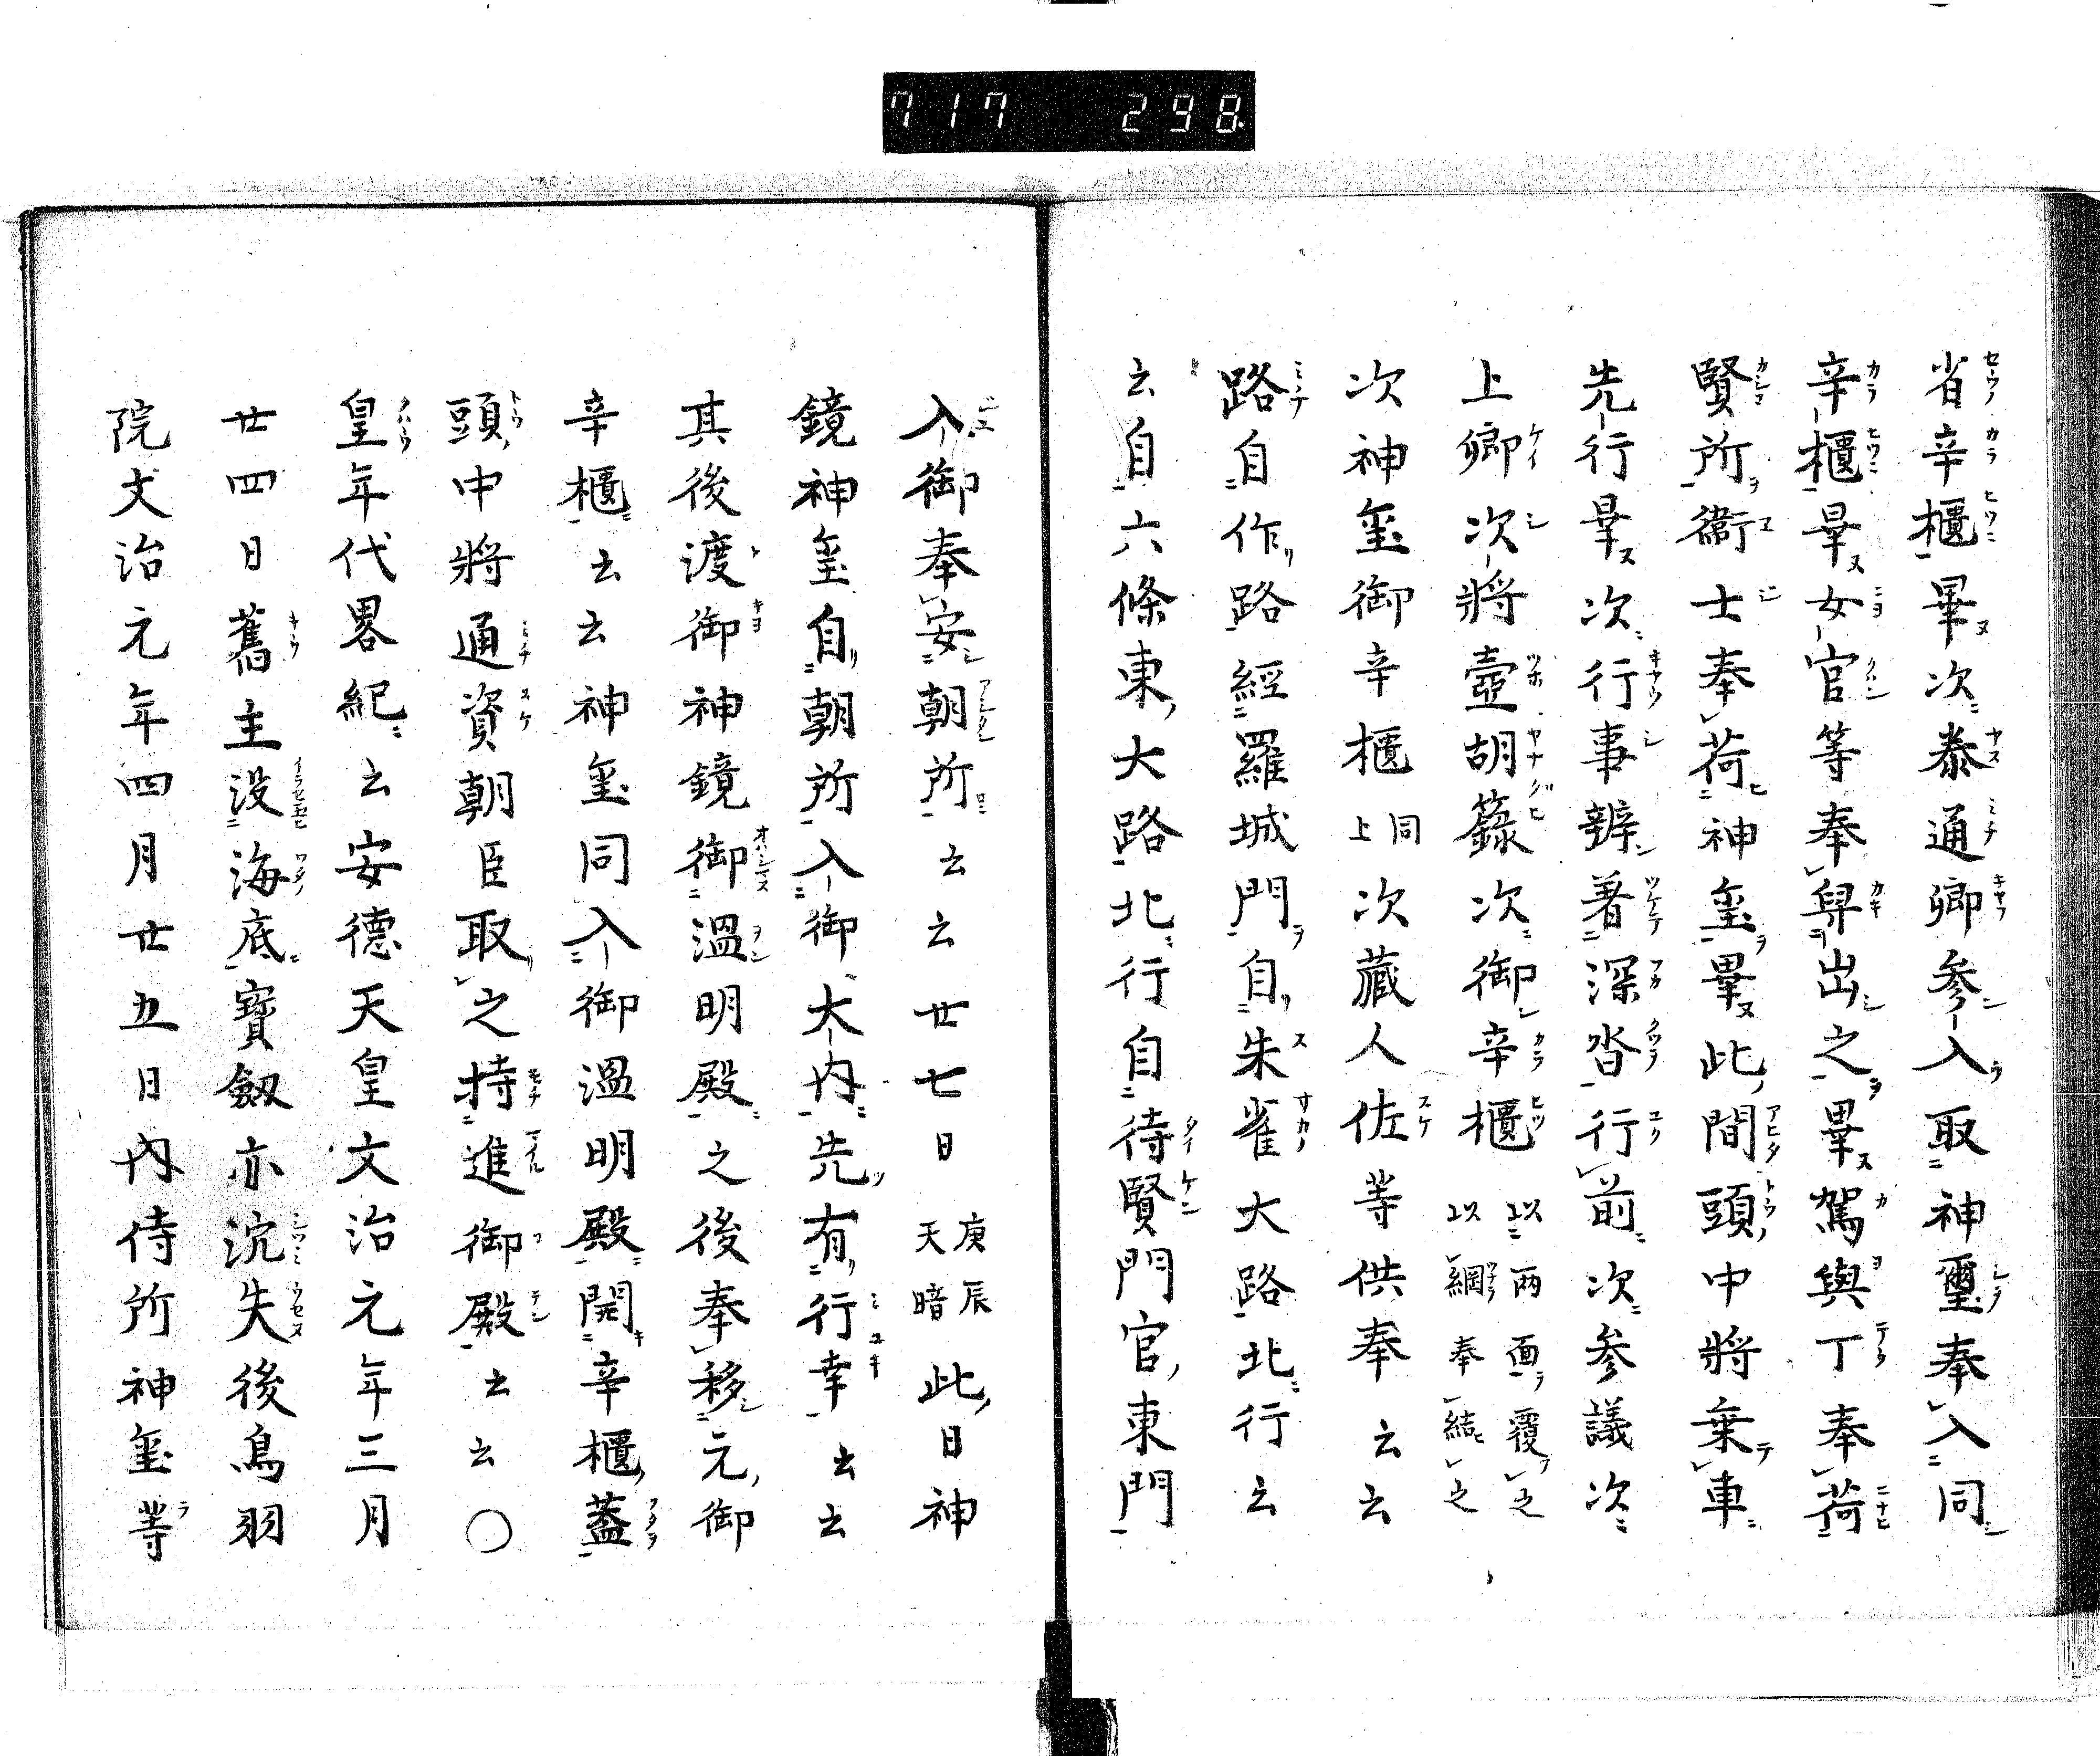 717 298
省辛櫃畢次泰通卿参入取神璽奉入同
辛櫃畢女官等奉舁出之畢駕輿丁奉荷
賢所衞士奉荷神璽畢此間頭中將乗車
先行畢次行事辨著深沓行前次参議次
上卿次將壺胡籙次御辛櫃以両面覆之以綱奉結之
次神璽御辛櫃同上次藏人佐等供奉云云
路自作路經羅城門自朱雀大路北行云
云自六條東大路北行自待賢門官東門
入御奉安朝所云云廿七日庚辰天暗此日神
鏡神璽自朝所入御大内先有行幸云云
其後渡御神鏡御温明殿之後奉移元御
辛櫃云云神璽同入御温明殿開辛櫃蓋
頭中將通資朝臣取之持進御殿云云○
皇年代畧紀云安德天皇文治元年三月
廿四日舊主没海底寶劔亦沉失後鳥羽
院文治元年四月廿五日内侍所神璽等